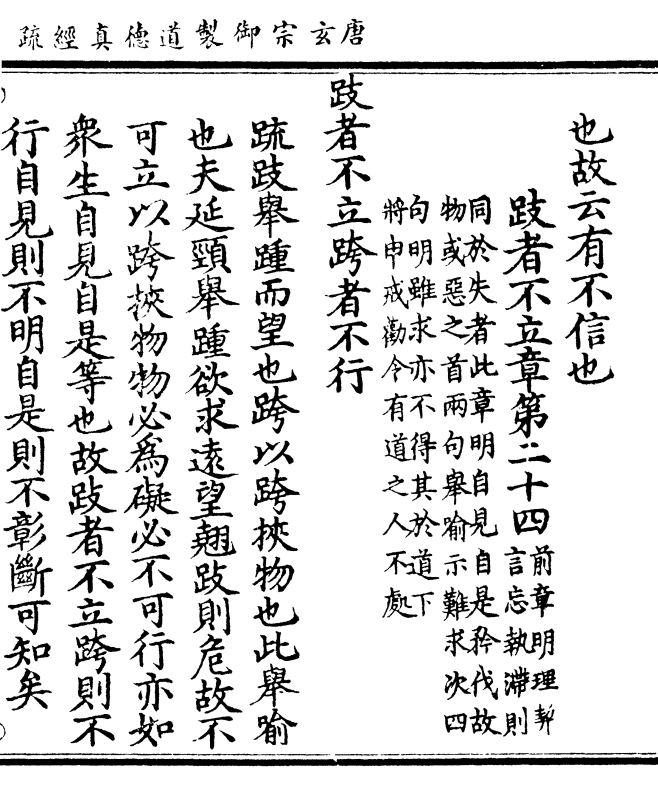 唐玄宗御製道德真經疏
也故云有不信也
跂者不立章第二十四
前章明理契
言忘執滯則
同於失者此章明自見自是矜伐故
物或惡之首兩句舉喻示難求次四
句明雖求亦不得其於道下
將申戒勸令有道之人不處
跂者不立跨者不行
疏跂舉踵而望也跨以跨挾物也此舉喻
也夫延頸舉踵欲求遠望翹跂則危故不
可立以跨挾物物必為礙必不可行亦如
眾生自見自是等也故跂者不立跨則不
行自見則不明自是則不彰斷可知矣